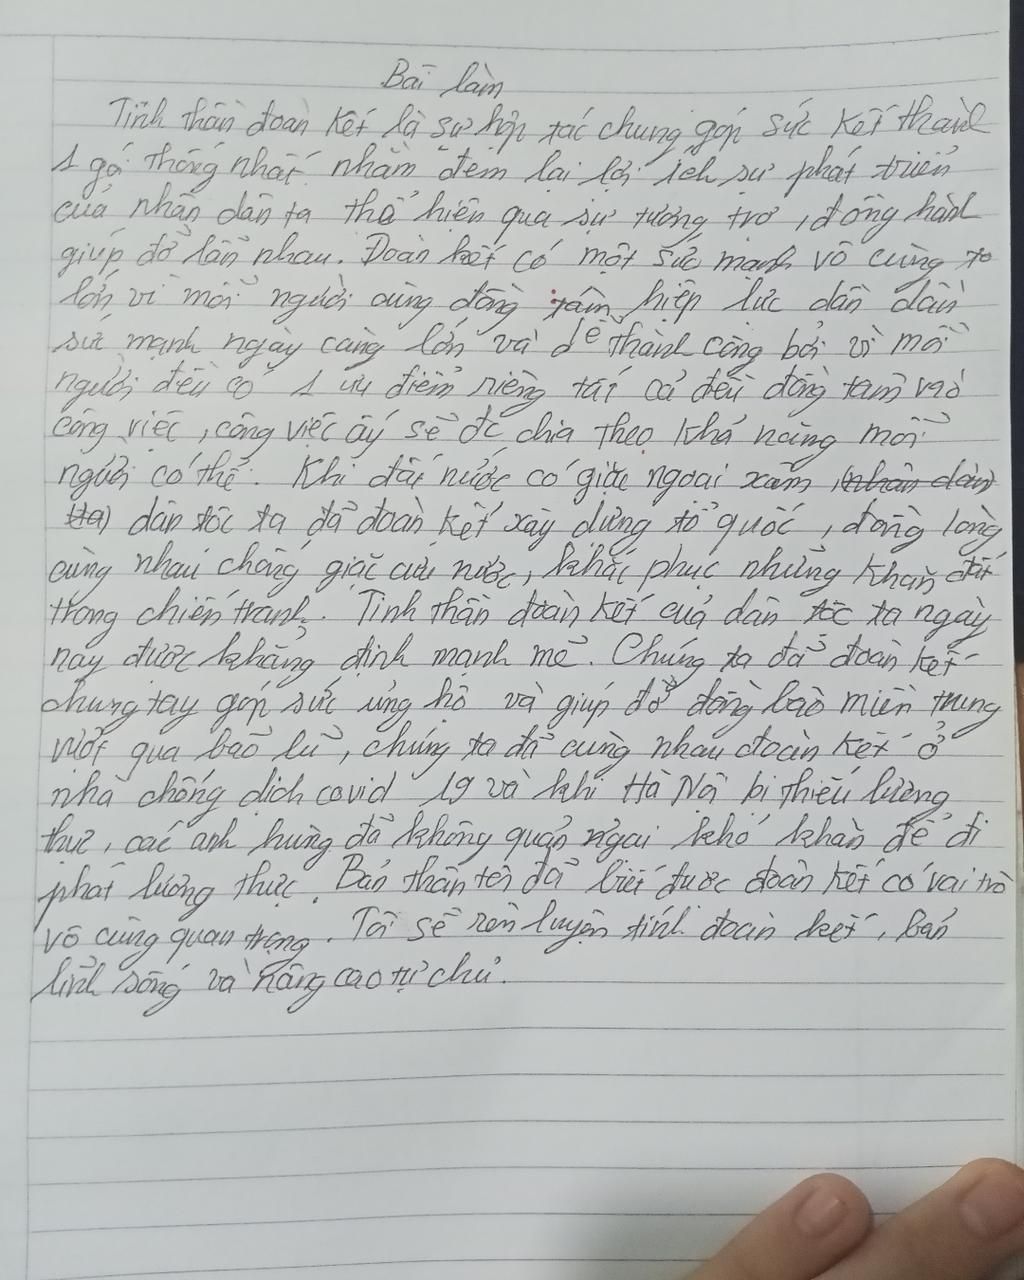 Bài làm
Tinh thần đoàn kết là sự hợp tác chung góp sức kết thành
1 gó thống nhất nhằm đem lại lợi ích sự phát triển
của nhân dân ta thể hiện qua sự tương trợ, đồng hành
giúp đỡ lẫn nhau. Đoàn kết có một sức mạnh vô cùng to
lớn vì mỗi người cùng đồng tâm hiệp lực dần dần
sức mạnh ngày càng lớn và dễ thành công bởi vì mỗi
người đều có 1 ưu điểm riêng tất cả đều đồng tâm vào
công việc, công việc ấy sẽ đc chia theo khả năng mỗi
người có thể. Khi đất nước có giặc ngoại xâm, (nhân dân
ta) dân tộc ta đã đoàn kết xây dựng tổ quốc, đồng lòng
cùng nhau chống giặc cứu nước, khắc phục những khăn
trong chiến tranh. Tinh thần đoàn kết của dân tộc ta ngày
nay được khẳng định mạnh mẽ. Chúng ta đã đoàn kết
chung tay góp sức ủng hộ và giúp đỡ đồng bào miền trung
vượt qua bão lũ, chúng ta đã cùng nhau đoàn kết ở
nhà chống dịch covid 19 và khi Hà Nội bị thiếu lương
thực, các anh hùng đã không quản ngại khó khăn để đi
phát lương thực. Bản thân tôi đã biết được đoàn kết có vai trò
vô cùng quan trọng. Tôi sẽ rèn luyện tính đoàn kết, bản
lĩnh sống và nâng cao tự chủ.